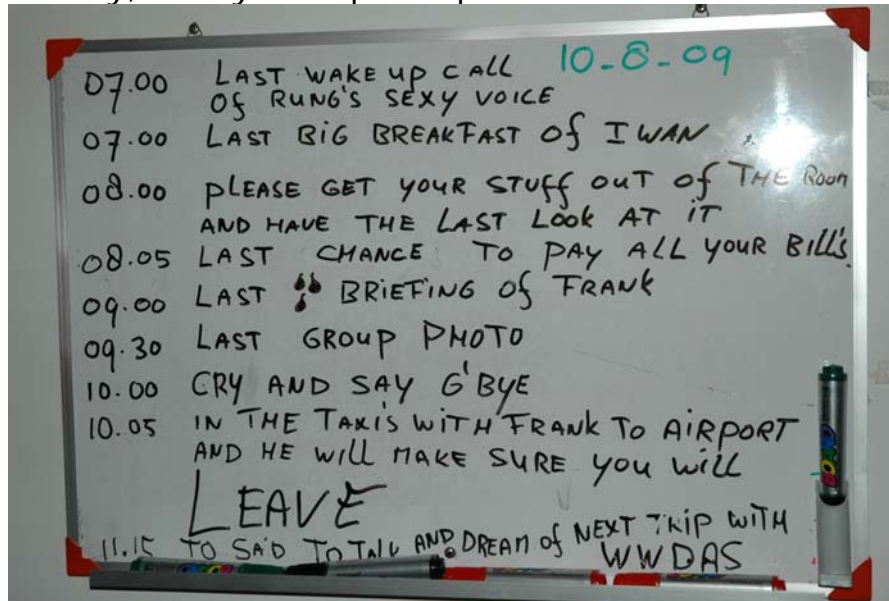 10-8-09
07.00 LAST WAKE UP CALL
OF RUNG'S SEXY VOICE
07.00 LAST BIG BREAKFAST OF IWAN
08.00 PLEASE GET YOUR STUFF OUT OF THE ROOM
AND HAVE THE LAST LOOK AT IT
08.05 LAST CHANCE TO PAY ALL YOUR BILL'S
09.00 LAST BRIEFING OF FRANK
09.30 LAST GROUP PHOTO
10.00 CRY AND SAY G'BYE
10.05 IN THE TAXIS WITH FRANK TO AIRPORT
AND HE WILL MAKE SURE YOU WILL
LEAVE
11.15 TO SAD TO TALK AND DREAM OF NEXT TRIP WITH
WWDAS